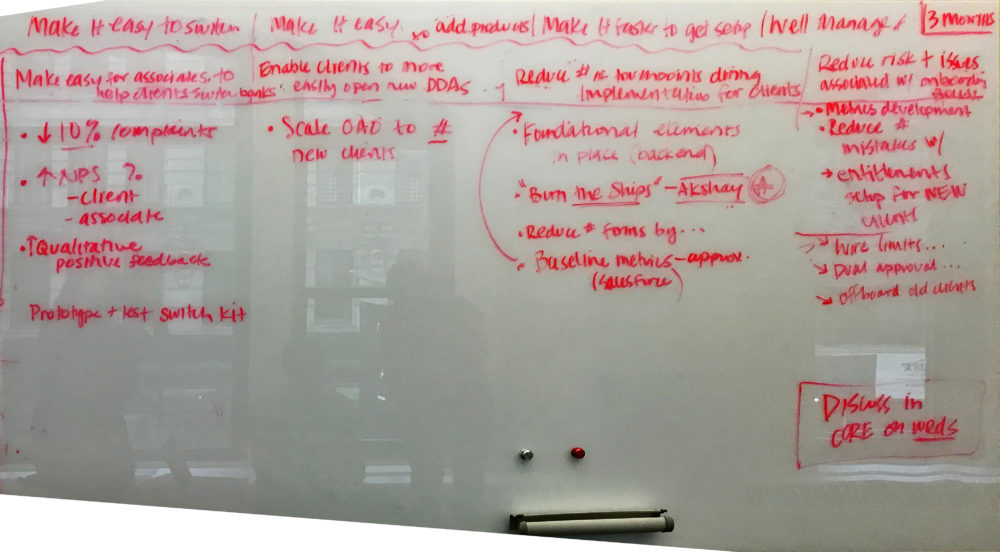 Make it easy to switch
Make it easy to add products
Make it faster to get setup / Well Managed
3 MONTHS
Make easy for associates to
help clients switch banks.
• ↓ 10% complaints
• ↑ NPS ?.
- client
- associate
• ↑ Qualitative
positive feedback
Prototype + test switch kit
Enable clients to more
easily open new DDAs
• Scale OAO to #
new clients
Reduce # of touchpoints during
implementation for clients
• Foundational elements
in place (backend)
• "Burn the Ships" - Akshay
• Reduce # forms by...
• Baseline metrics - approv.
(Salesforce)
Reduce risk + issues
associated w/ onboarding
• Metrics development
• Reduce #
mistakes w/
→ entitlements
setup for NEW
clients
→ Wire limits...
→ Dual approval...
→ Offboard old clients
DISCUSS in
CORE on weds